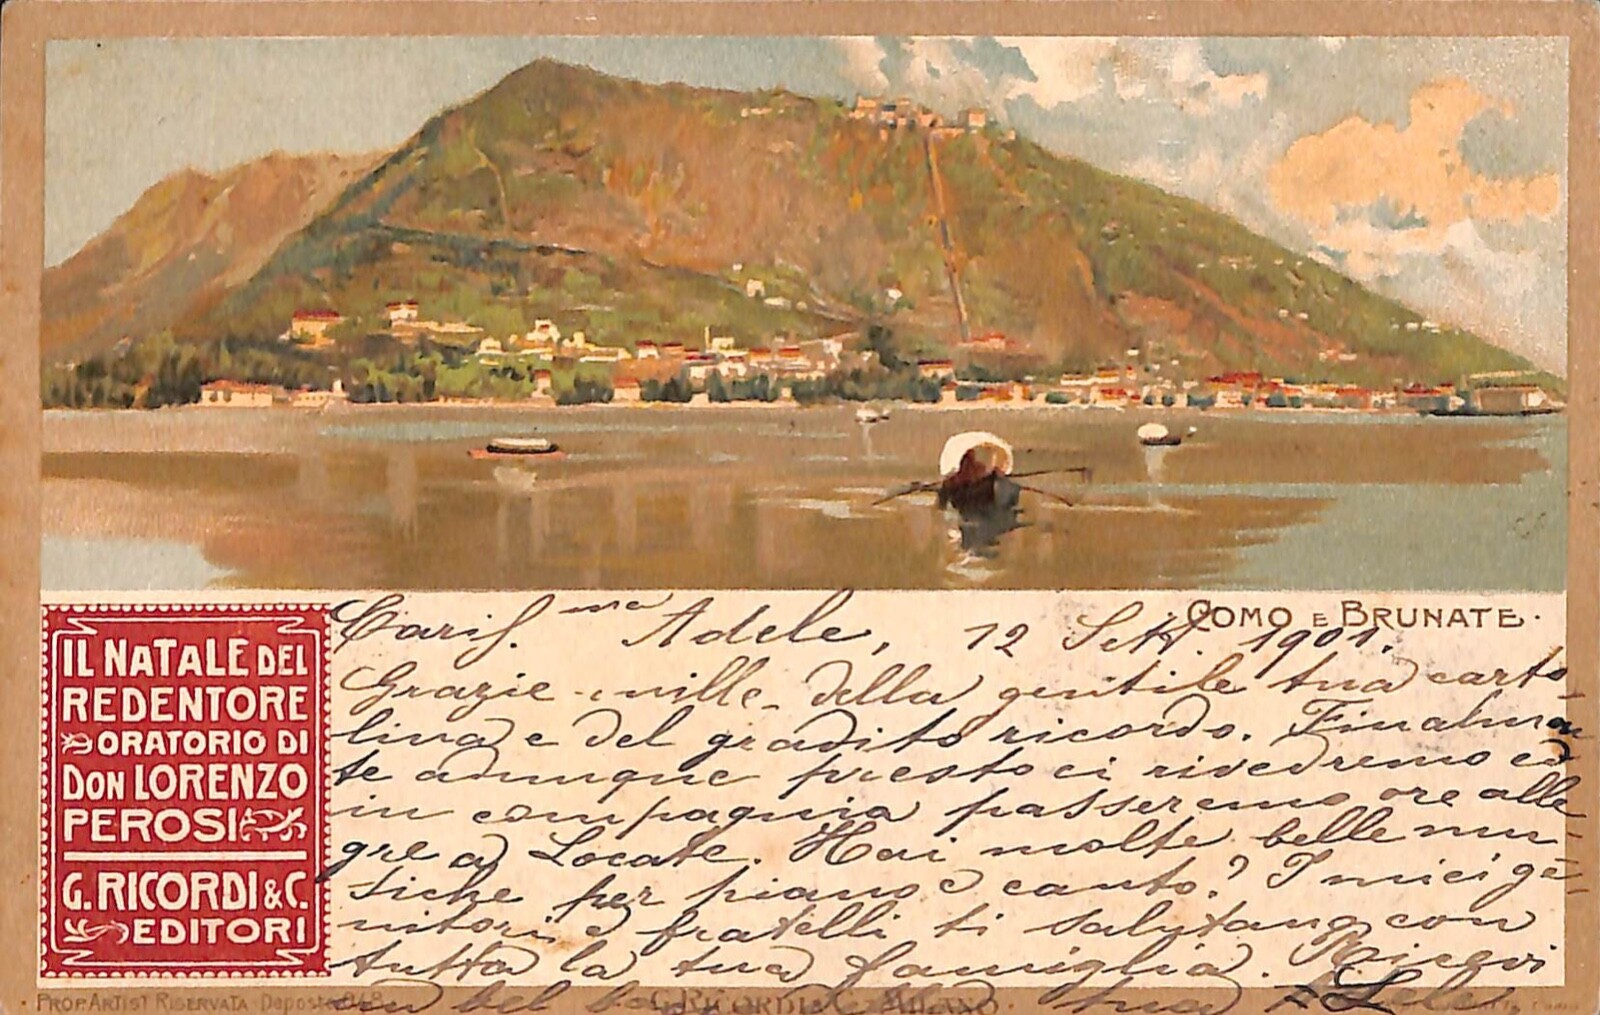 COMO E BRUNATE.
IL NATALE DEL
REDENTORE
ORATORIO DI
DON LORENZO
PEROSI
G. RICORDI & C.
EDITORI
Caris.ma Adele, 12 Sett. 1901.
Grazie mille della gentile tua carto-
lina e del gradito ricordo. Finalmen
te adunque presto ci rivedremo ed
in compagnia passeremo ore alle-
gre a Locate. Hai molte belle mu-
siche per piano e canto? I miei ge-
nitori e fratelli ti salutano con
tutta la tua famiglia. Ricevi
un bel tua
PROP. ARTIST RISERVATA Deposto 948
G. RICORDI & C. MILANO.